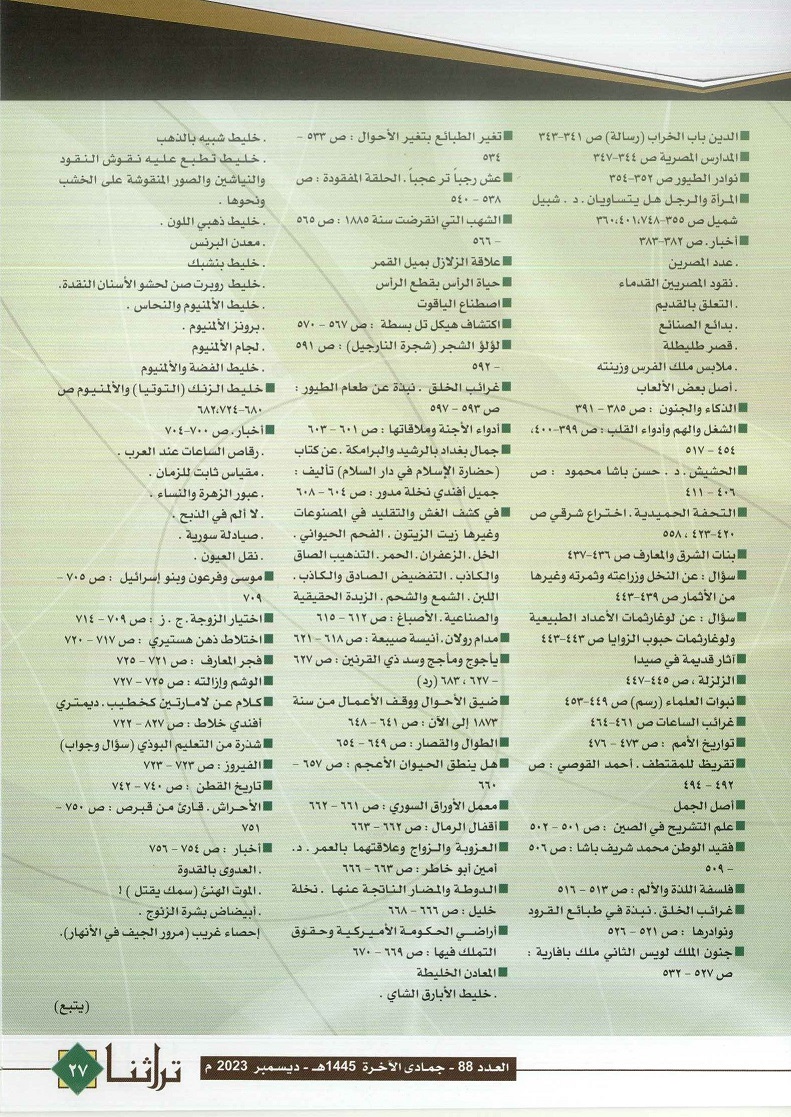 الدين باب الخراب (رسالة) ص ٣٤١-٣٤٣
المدارس المصرية ص ٣٤٤-٣٤٧
نوادر الطيور ص ٣٥٢-٣٥٤
المرأة والرجل هل يتساويان . د . شبيل
شميل ص ٣٥٥-٣٦٠،٤٠١،٧٤٨
أخبار . ص ٣٨٢-٣٨٣
. عدد المصرين
. نقود المصريين القدماء
. التعلق بالقديم
. بدائع الصنائع
. قصر طليطلة
. ملابس ملك الفرس وزينته
. أصل بعض الألعاب
الذكاء والجنون : ص ٣٨٥ - ٣٩١
الشغل والهم وأدواء القلب : ص ٣٩٩-٤٠٠،
٤٥٤ - ٥١٧
الحشيش . د . حسن باشا محمود : ص
٤٠٦ - ٤١١
التحفة الحميدية . اختراع شرقي ص
٤٢٠-٤٢٣ ، ٥٥٨
بنات الشرق والمعارف ص ٤٣٦-٤٣٧
سؤال : عن النخل وزراعته وثمرته وغيرها
من الأثمار ص ٤٣٩-٤٤٣
سؤال : عن لوغارثمات الأعداد الطبيعية
ولوغارثمات حبوب الزوايا ص ٤٤٣-٤٤٣
آثار قديمة في صيدا
الزلزلة ، ص ٤٤٥-٤٤٧
نبوات العلماء (رسم) ص ٤٤٩-٤٥٣
غرائب الساعات ص ٤٦١-٤٦٤
تواريخ الأمم : ص ٤٧٣ - ٤٧٦
تقريظ للمقتطف . أحمد القوصي : ص
٤٩٢ - ٤٩٤
أصل الجمل
علم التشريح في الصين : ص ٥٠١ - ٥٠٢
فقيد الوطن محمد شريف باشا : ص ٥٠٦
- ٥٠٩
فلسفة اللذة والألم : ص ٥١٣ - ٥١٦
غرائب الخلق . نبذة في طبائع القرود
ونوادرها : ص ٥٢١ - ٥٢٦
جنون الملك لويس الثاني ملك بافارية :
ص ٥٢٧ - ٥٣٢
تغير الطبائع بتغير الأحوال : ص ٥٣٣ -
٥٣٤
عش رجباً تر عجباً . الحلقة المفقودة : ص
٥٣٨ - ٥٤٠
الشهب التي انقرضت سنة ١٨٨٥ : ص ٥٦٥
- ٥٦٦
علاقة الزلازل بميل القمر
حياة الرأس بقطع الرأس
اصطناع الياقوت
اكتشاف هيكل تل بسطة : ص ٥٦٧ - ٥٧٠
لؤلؤ الشجر (شجرة النارجيل) : ص ٥٩١
- ٥٩٢
غرائب الخلق . نبذة عن طعام الطيور :
ص ٥٩٣ - ٥٩٧
أدواء الأجنة وملاقاتها : ص ٦٠١ - ٦٠٣
جمال بغداد بالرشيد والبرامكة . عن كتاب
(حضارة الإسلام في دار السلام) تأليف :
جميل أفندي نخلة مدور : ص ٦٠٤ - ٦٠٨
في كشف الغش والتقليد في المصنوعات
وغيرها زيت الزيتون . الفحم الحيواني .
الخل . الزعفران . الحمر . التذهيب الصاق
والكاذب . التفضيض الصادق والكاذب .
اللبن . الشمع والشحم . الزبدة الحقيقية
والصناعية . الأصباغ : ص ٦١٢ - ٦١٥
مدام رولان . أنيسة صيبعة : ص ٦١٨ - ٦٢١
يأجوج ومأجج وسد ذي القرنين : ص ٦٢٧
- ٦٢٧ ، ٦٨٣ (رد)
ضيق الأحوال ووقف الأعمال من سنة
١٨٧٣ إلى الآن : ص ٦٤١ - ٦٤٨
الطوال والقصار : ص ٦٤٩ - ٦٥٤
هل ينطق الحيوان الأعجم : ص ٦٥٧ -
٦٦٠
معمل الأوراق السوري : ص ٦٦١ - ٦٦٢
أقفال الرمال : ص ٦٦٢ - ٦٦٣
العزوبة والزواج وعلاقتهما بالعمر . د.
أمين أبو خاطر : ص ٦٦٣ - ٦٦٦
الدوطة والمضار الناتجة عنها . نخلة
خليل : ص ٦٦٦ - ٦٦٨
أراضي الحكومة الأميركية وحقوق
التملك فيها : ص ٦٦٩ - ٦٧٠
المعادن الخليطة
. خليط الأبارق الشاي .
. خليط شبيه بالذهب
. خليط تطبع عليه نقوش النقود
والنياشين والصور المنقوشة على الخشب
ونحوها .
. خليط ذهبي اللون .
. معدن البرنس
. خليط بنشبك
. خليط روبرت صن لحشو الأسنان النقدة.
. خليط الألمنيوم والنحاس .
. برونز الألمنيوم .
. لجام الألمنيوم
. خليط الفضة والألمنيوم
خليط الزنك (التوتيا) والألمنيوم ص
٦٨٠-٦٨٢،٧٢٤
أخبار . ص ٧٠٠-٧٠٤
. رقاص الساعات عند العرب .
. مقياس ثابت للزمان .
. عبور الزهرة والنساء .
. لا ألم في الذبح .
. صيادلة سورية .
. نقل العيون .
موسى وفرعون وبنو إسرائيل : ص ٧٠٥ -
٧٠٩
اختيار الزوجة . ج . ز : ص ٧٠٩ - ٧١٤
اختلاط ذهن هستيري : ص ٧١٧ - ٧٢٠
فجر المعارف : ص ٧٢١ - ٧٢٥
الوشم وإزالته : ص ٧٢٥ - ٧٢٧
كلام عن لامارتين كخطيب . ديمتري
أفندي خلاط : ص ٨٢٧ - ٧٢٢
شذرة من التعليم البوذي (سؤال وجواب)
الفيروز : ص ٧٢٣ - ٧٢٣
تاريخ القطن : ص ٧٤٠ - ٧٤٢
الأحراش . قارئ من قبرص : ص ٧٥٠ -
٧٥١
أخبار : ص ٧٥٤ - ٧٥٦
. العدوى بالقدوة
. الموت الهنئ (سمك يقتل ) !
. أبيضاض بشرة الزنوج .
إحصاء غريب (مرور الجيف في الأنهار).
(يتبع)
العدد 88 - جمادى الآخرة 1445هـ - ديسمبر 2023 م
تراثنا
٢٧